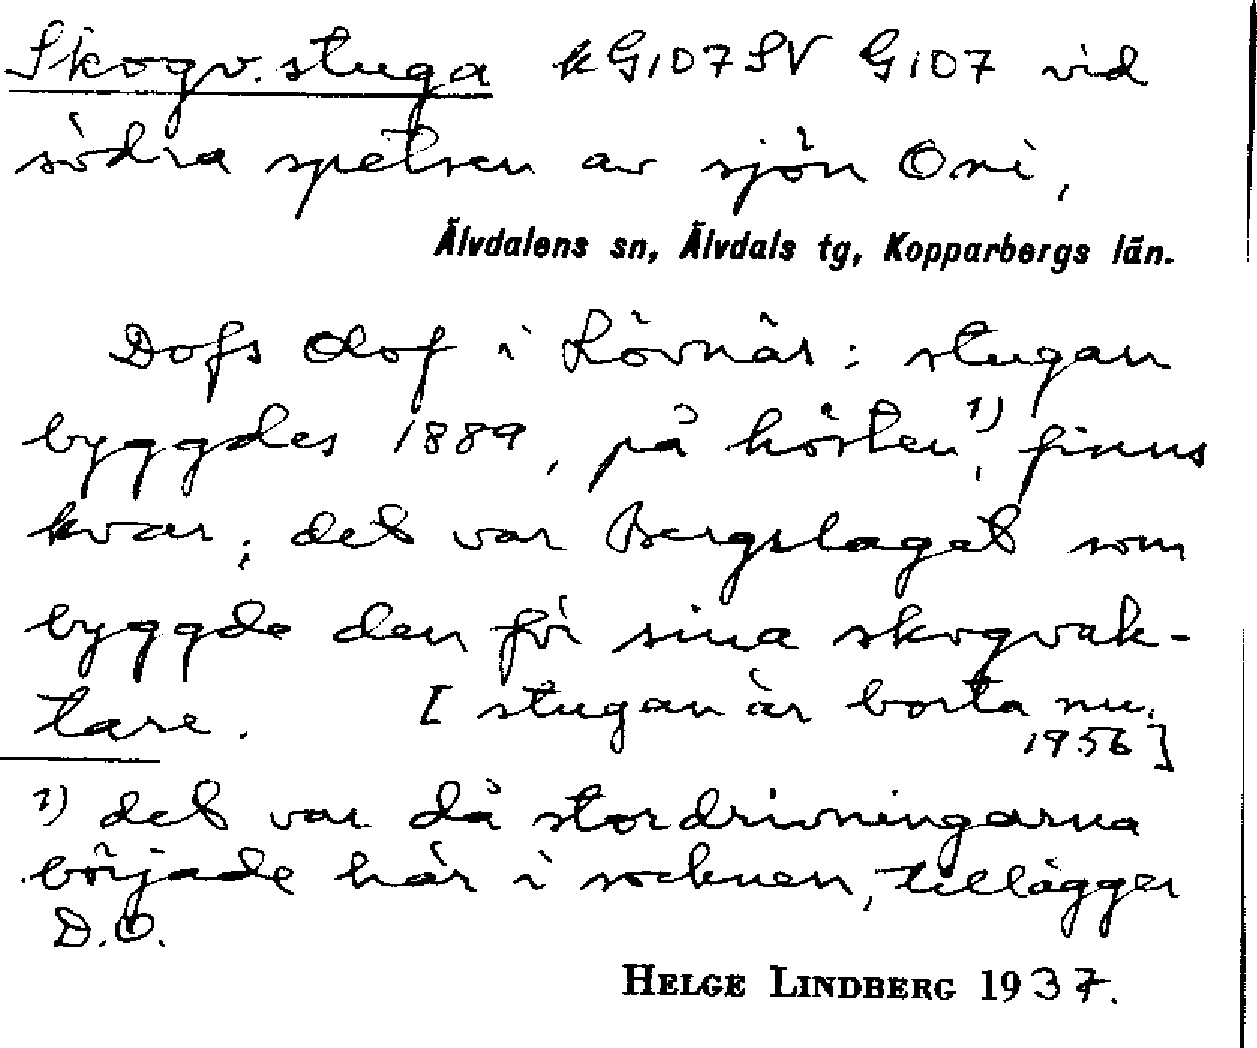 Skogv.stuga k G107SV G107 vid
södra spetsen av sjön Orri,
Älvdalens sn, Älvdals tg, Kopparbergs län.
Dofs Olof i Lövnäs: stugan
byggdes 1889, på hösten,¹⁾ finns
kvar; det var Bergslaget som
byggde den för sina skogvak-
tare. [stugan är borta nu.
1956]
¹⁾ det var då stordrivningarna
började här i socknen, tillägger
D.O.
HELGE LINDBERG 1937.